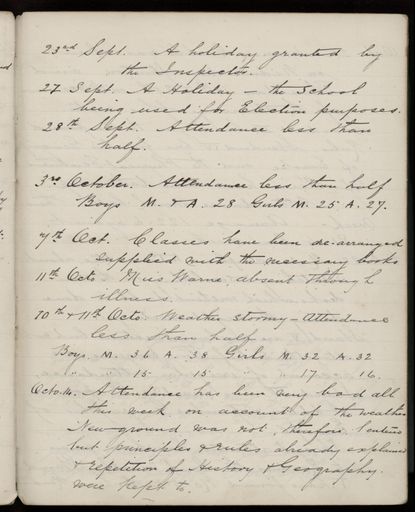 23rd Sept. A holiday granted by
the Inspector.
27 Sept. A Holiday – the School
being used for Election purposes.
28th Sept. Attendance less than
half.
3rd October. Attendance less than half
Boys M. & A. 28 Girls M. 25 A. 27.
7th Oct. Classes have been re-arranged
supplied with the necessary books
11th Octo. Miss Warne absent through
illness.
10th & 11th Octo. Weather stormy – Attendance
less than half
Boys M. 36 A. 38 Girls M. 32 A. 32
" " 15 15 " " 17 16.
Octo. 14. Attendance has been very bad all
this week on account of the weather
New ground was not, therefore,
but principles & rules already explained
& repetition of History & Geography.
were kept to.